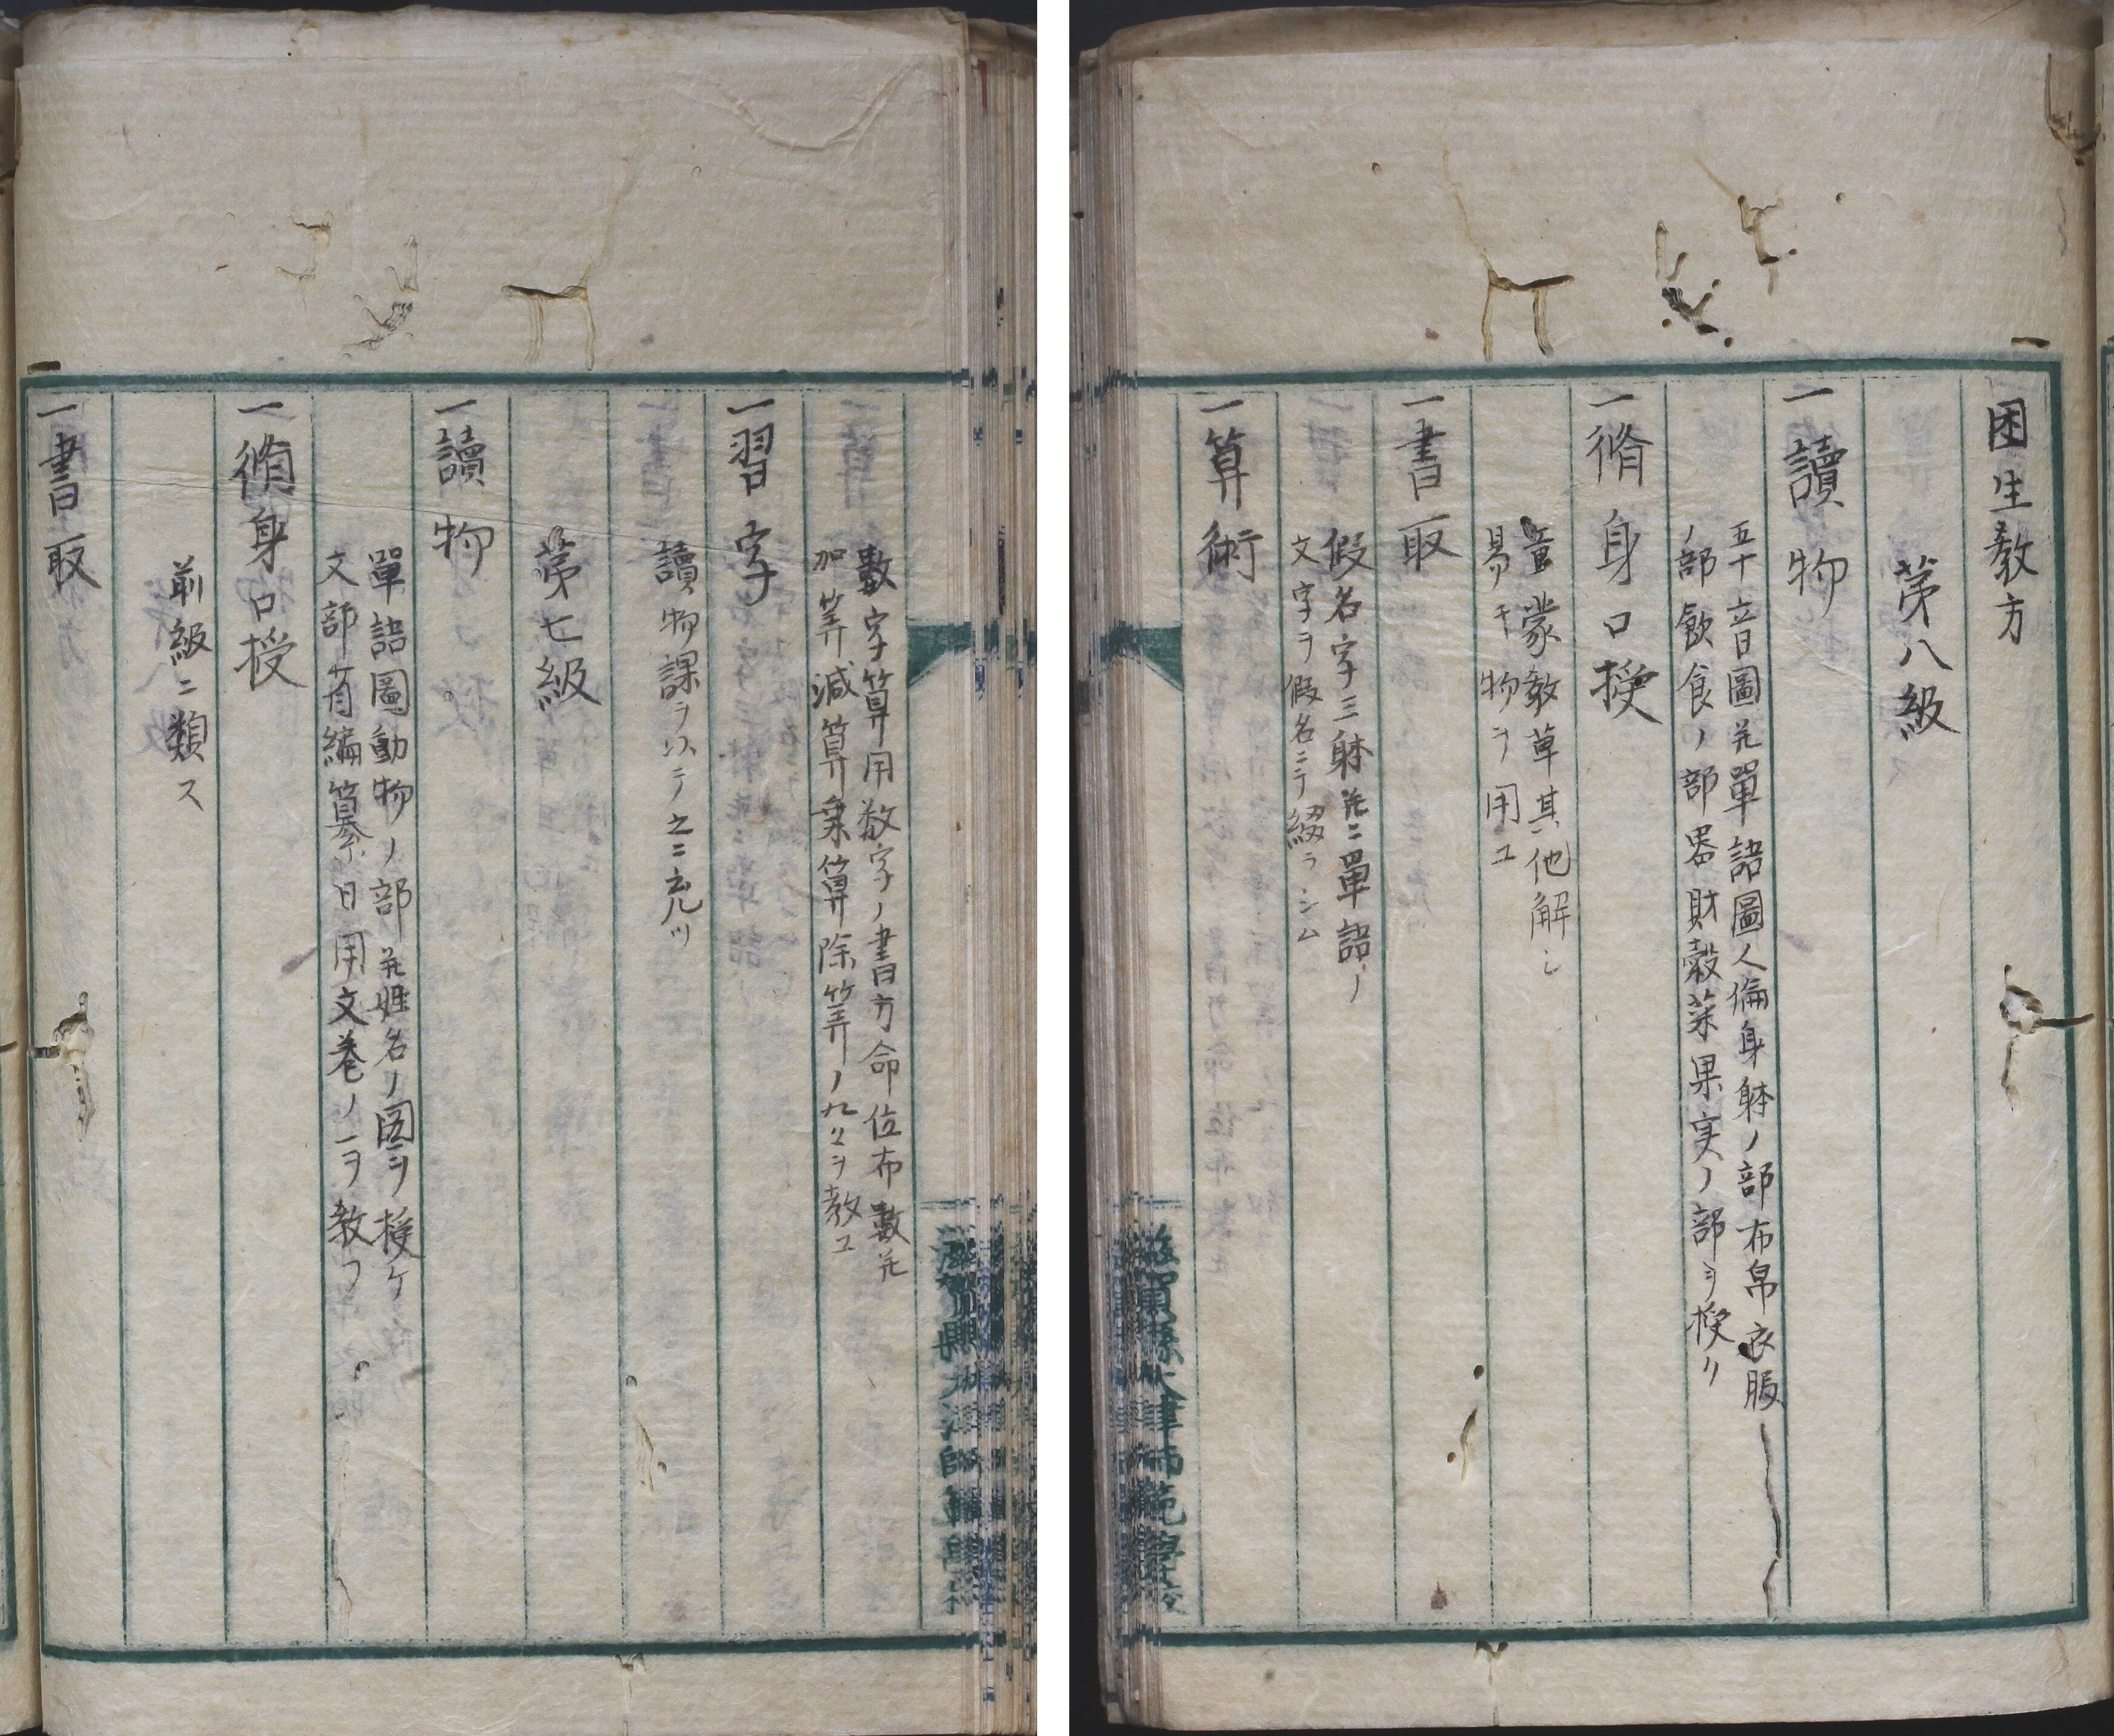 困生教方
第八級
一讀物
五十音圖並單語圖人倫身躰ノ部布帛衣服
ノ部飲食ノ部器財穀菜果実ノ部ヲ授リ
一脩身口授
童蒙教草其他解シ
易キ物ヲ用ユ
一書取
假名字三躰並ニ單語ノ
文字ヲ假名ニテ綴ラシム
一算術
滋賀縣大津師範學校
數字算用数字ノ書方命位布數並
加算減算乗算除算ノ九々ヲ教ユ
一習字
讀物課ヲ以テ之ニ充ツ
第七級
一讀物
單語圖動物ノ部並姓名ノ図ヲ授ケ
文部省編纂日用文巻ノ一ヲ教フ
一脩身口授
前級ニ類ス
一書取